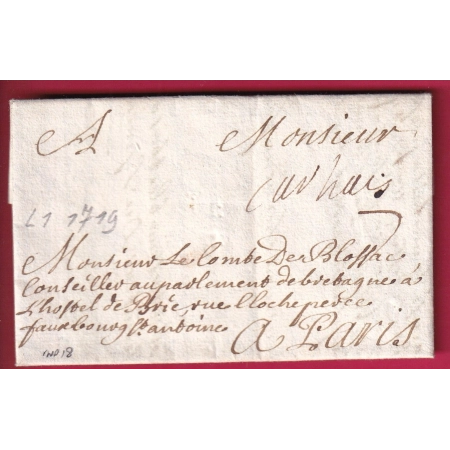 A Monsieur
carhais
7
L1 1719
Monsieur Le Comte De Blossac
Conseiller au parlement de bretagne à
L'hostel de Brie rue Clocheperce
fauxbourg St antoine
A Paris
IND 18